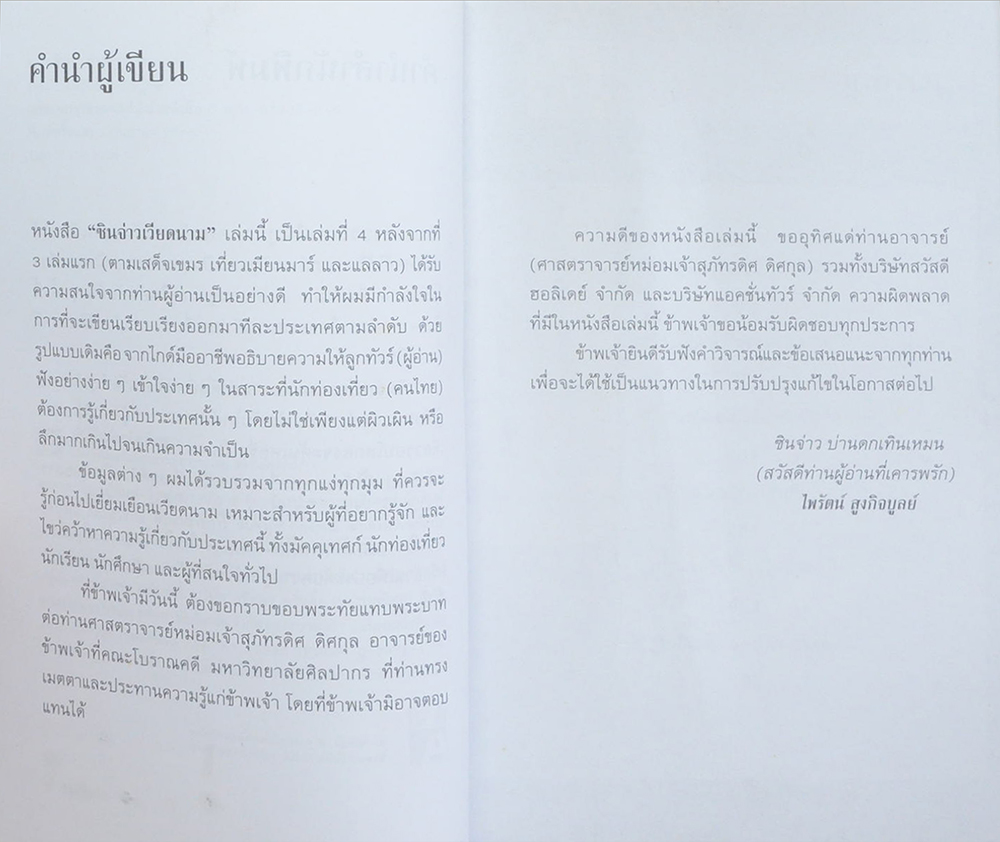 คำนำผู้เขียน
หนังสือ “ซินจ่าวเวียดนาม” เล่มนี้ เป็นเล่มที่ 4 หลังจากที่
3 เล่มแรก (ตามเสด็จเขมร เที่ยวเมียนมาร์ และแลลาว) ได้รับ
ความสนใจจากท่านผู้อ่านเป็นอย่างดี ทำให้ผมมีกำลังใจใน
การที่จะเขียนเรียบเรียงออกมาทีละประเทศตามลำดับ ด้วย
รูปแบบเดิมคือจากไกด์มืออาชีพอธิบายความให้ลูกทัวร์ (ผู้อ่าน)
ฟังอย่างง่าย ๆ เข้าใจง่าย ๆ ในสาระที่นักท่องเที่ยว (คนไทย)
ต้องการรู้เกี่ยวกับประเทศนั้น ๆ โดยไม่ใช่เพียงแต่ผิวเผิน หรือ
ลึกมากเกินไปจนเกินความจำเป็น
ข้อมูลต่าง ๆ ผมได้รวบรวมจากทุกแง่ทุกมุม ที่ควรจะ
รู้ก่อนไปเยี่ยมเยือนเวียดนาม เหมาะสำหรับผู้ที่อยากรู้จัก และ
ไขว่คว้าหาความรู้เกี่ยวกับประเทศนี้ ทั้งมัคคุเทศก์ นักท่องเที่ยว
นักเรียน นักศึกษา และผู้ที่สนใจทั่วไป
ที่ข้าพเจ้ามีวันนี้ ต้องขอกราบขอบพระทัยแทบพระบาท
ต่อท่านศาสตราจารย์หม่อมเจ้าสุภัทรดิศ ดิศกุล อาจารย์ของ
ข้าพเจ้าที่คณะโบราณคดี มหาวิทยาลัยศิลปากร ที่ท่านทรง
เมตตาและประทานความรู้แก่ข้าพเจ้า โดยที่ข้าพเจ้ามิอาจตอบ
แทนได้
ความดีของหนังสือเล่มนี้ ขออุทิศแด่ท่านอาจารย์
(ศาสตราจารย์หม่อมเจ้าสุภัทรดิศ ดิศกุล) รวมทั้งบริษัทสวัสดี
ฮอลิเดย์ จำกัด และบริษัทแอคชั่นทัวร์ จำกัด ความผิดพลาด
ที่มีในหนังสือเล่มนี้ ข้าพเจ้าขอน้อมรับผิดชอบทุกประการ
ข้าพเจ้ายินดีรับฟังคำวิจารณ์และข้อเสนอแนะจากทุกท่าน
เพื่อจะได้ใช้เป็นแนวทางในการปรับปรุงแก้ไขในโอกาสต่อไป
ซินจ่าว บ่านดกเทินเหมน
(สวัสดีท่านผู้อ่านที่เคารพรัก)
ไพรัตน์ สูงกิจบูลย์